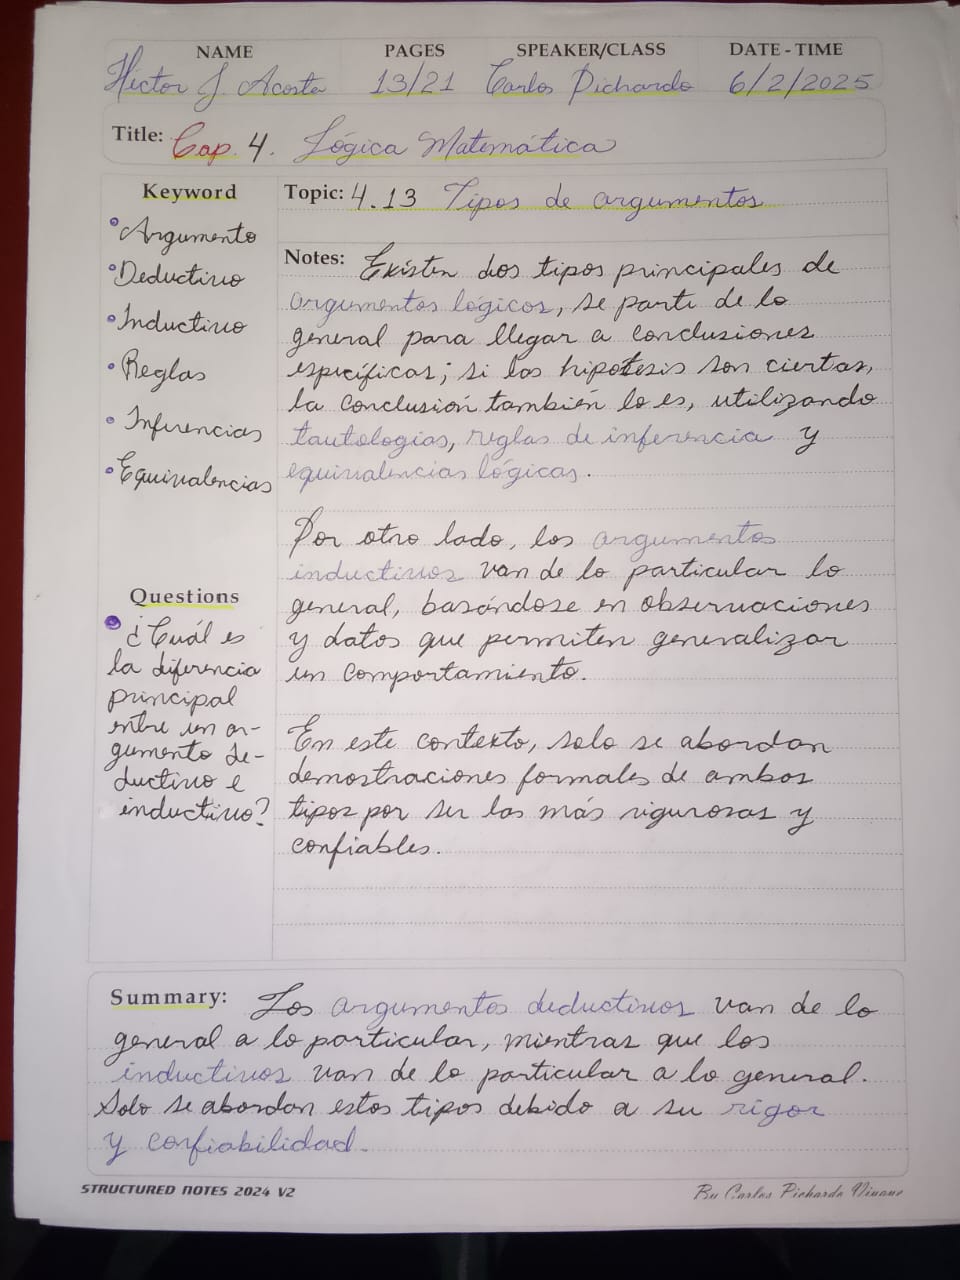 NAME PAGES SPEAKER/CLASS DATE - TIME
Hector J. Acosta 13/21 Carlos Pichardo 6/2/2025
Title: Cap. 4. Lógica Matemática
Keyword
Argumento
Deductivo
Inductivo
Reglas
Inferencias
Equivalencias
Questions
¿Cuál es
la diferencia
principal
entre un ar-
gumento de-
ductivo e
inductivo?
Topic: 4.13 Tipos de argumentos
Notes: Existen dos tipos principales de
argumentos lógicos, se parte de lo
general para llegar a conclusiones
específicas; si las hipótesis son ciertas,
la conclusión también lo es, utilizando
tautologías, reglas de inferencia y
equivalencias lógicas.
Por otro lado, los argumentos
inductivos van de lo particular lo
general, basándose en observaciones
y datos que permiten generalizar
un comportamiento.
En este contexto, solo se abordan
demostraciones formales de ambos
tipos por ser las más rigurosas y
confiables.
Summary: Los argumentos deductivos van de lo
general a lo particular, mientras que los
inductivos van de lo particular a lo general.
Solo se abordan estos tipos debido a su rigor
y confiabilidad.
STRUCTURED NOTES 2024 V2
By Carlos Pichardo Viuque